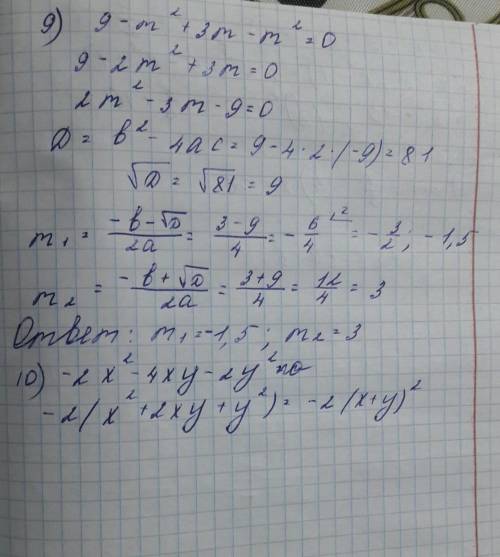 9) 9 - m² + 3m - m² = 0
9 - 2m² + 3m = 0
2m² - 3m - 9 = 0
D = b² - 4ac = 9 - 4·2·(-9) = 81
√D = √81 = 9
m₁ = (-b-√D)/2a = (3-9)/4 = -6/4 |² = -3/2; -1,5
m₂ = (-b+√D)/2a = (3+9)/4 = 12/4 = 3
Ответ: m₁ = -1,5; m₂ = 3
10) -2x² - 4xy - 2y²
-2(x² + 2xy + y²) = -2(x+y)²